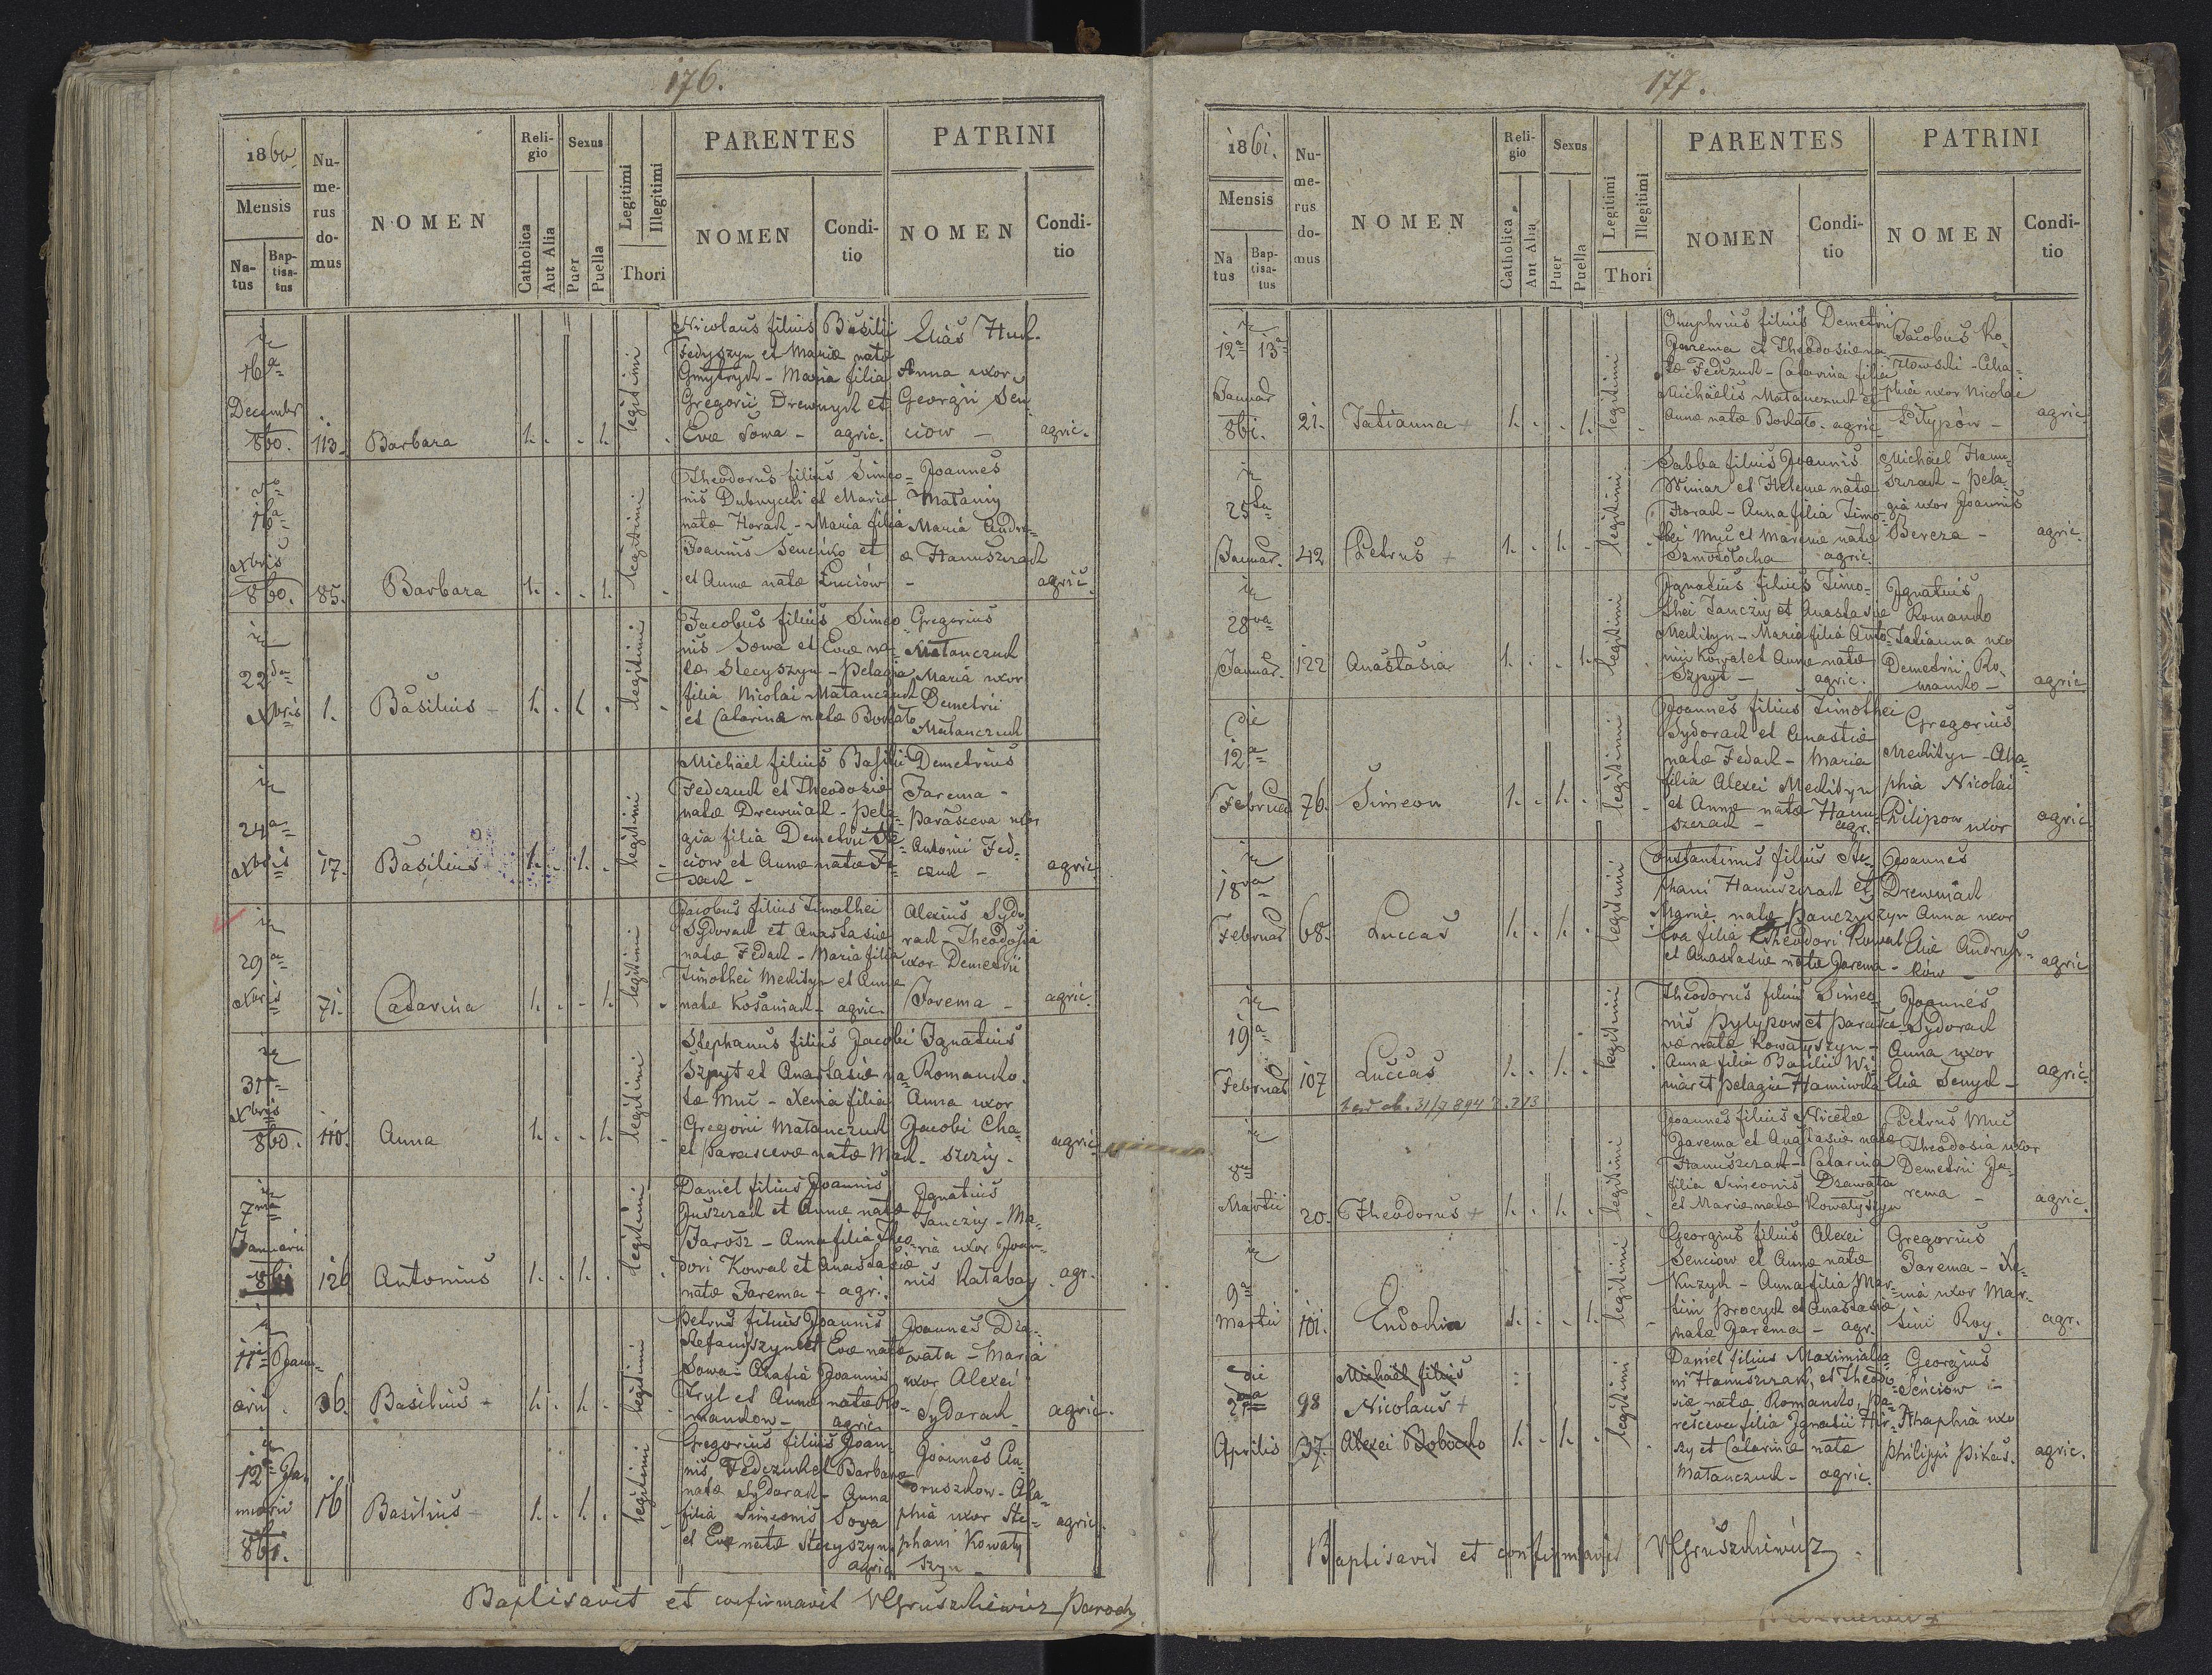 176.
1860
Mensis
Na-
tus
Bap-
tisa-
tus
Nu-
me-
rus
do-
mus
NOMEN
Reli-
gio
Catholica
Aut Alia
Sexus
Puer
Puella
Legitimi
Illegitimi
Thori
PARENTES
NOMEN
Condi-
tio
PATRINI
NOMEN
Condi-
tio
16a
Decembr
860. 113. Barbara 1. 1. legitimi
Nicolaus filius Basilii
Fedyszyn et Mariæ natæ
Gmytryk - Maria filia
Gregorii Drewnych et
Evæ Sowa - agric.
Elias Huk.
Anna uxor
Georgii Sen
ciow -
agric.
16a
Xbris
860. 85. Barbara 1. 1. legitimi
Theodorus filius Simeo-
nis Dubnycki et Mariæ
natæ Horak - Maria filia
Joannis Senciko et
et Annæ natæ Luciów -
Joannes
Matanij
Maria Andre-
æ Hanuszczak
agric.
22da
Xbris 1. Basilius + 1. 1. legitimi
Jacobus filius Simeo-
nis Sowa et Evæ na-
tæ Stecyszyn - Pelagia
filia Nicolai Matanczuk
et Catarinæ natæ Borkato
Gregorius
Matanczuk
Maria uxor
Demetrii
Matanczuk
24a
Xbris 17. Basilius 1. 1. legitimi
Michäel filius Basilii
Fedczuk et Theodosiæ
natæ Drewniak - Pela-
gia filia Demetrii Se-
ciow et Annæ natæ
Demetrius
Jarema -
Parasceva uxor
Antonii Fed-
czuk -
agric
29a
Xbris 71. Catarina 1. 1. legitimi
Jacobus filius Timothei
Sydorak et Anastasiæ
natæ Fedak - Maria filia
Timothei Mekityn et Annæ
natæ Kosaniak - agric.
Alexius Sydo-
rak Theodosia
uxor Demetrii
Jarema -
agric.
31a
Xbris
860. 110. Anna 1. 1. legitimi
Stephanus filius Jacobi
Szpyt et Anastasiæ na-
tæ Muć - Xenia filia
Gregorii Matanczuk
et Parascevæ natæ Mak.
Ignatius
Romanko.
Anna uxor
Jacobi Cha-
szczij.
agric
7ma
Januarii
861 126 Antonius 1. 1. legitimi
Daniel filius Joannis
Juszczak et Annæ natæ
Jarosz - Anna filia Theo-
dori Kowal et Anastasiæ
natæ Jarema - agr.
Ignatius
Janczij - Ma-
ria uxor Joan-
nis Katabay
agr.
11a Janu-
arii. 36. Basilius 1. 1. legitimi
Petrus filius Joannis
Stefaniszyn et Evæ natæ
Sowa - Ahafia Joannis
Kryl et Annæ natæ Ro-
mankow - agric.
Joannes Dza-
wata - Maria
uxor Alexei
Sydorak
agric.
12a Ja-
nuarii
861. 16 Basilius 1. 1. legitimi
Gregorius filius Joan-
nis Fedczuk et Barbaræ
natæ Sydorak - Anna
filia Simeonis Sowa
et Evæ natæ Stecyszyn
agric
Joannes An-
druszkow - Aha-
phia uxor Ste-
phani Kowaty
szyn -
agric.
Baptisavit et confirmavit VGruszkiewicz Paroch
177.
1861.
Mensis
Na
tus
Bap-
tisa-
tus
Nu-
me-
rus
do-
mus
NOMEN
Reli-
gio
Catholica
Aut Alia
Sexus
Puer
Puella
Legitimi
Illegitimi
Thori
PARENTES
NOMEN
Condi-
tio
PATRINI
NOMEN
Condi-
tio
12a 13a
Januar
861. 21. Tatianna 1. 1. legitimi
Onuphrius filius Demetrii
Jarema et Theodosiæ na-
tæ Fedczuk - Catarina filia
Michäelis Matanczuk et
Annæ natæ Borkato. agric
Jacobus Ko-
ztowski - Aha-
phia uxor Nicolai
Pilypów -
agric
25ta
Januar. 42 Petrus + 1. 1. legitimi
Sabba filius Joannis
Winiar et Helenæ natæ
Horak - Anna filia Timo-
thei Muć et Marinæ natæ
Szmotolocha agric.
Michäel Hanu-
szczak - Pela-
gia uxor Joannis
Bereza -
agric.
28va
Januar. 122 Anastasia 1. 1. legitimi
Ignatius filius Timo-
thei Janczij et Anastasiæ
Mekityn - Maria filia Anto-
nii Kowal et Annæ natæ
Szpyt - agric.
Ignatius
Romanko
Tatianna uxo
Demetrii Ro-
manko -
agric
Die
12a
Februar 76. Simeon 1. 1. legitimi
Joannes filius Timothei
Sydorak et Anastiæ
natæ Fedak - Maria
filia Alexei Mekityn
et Annæ natæ Hanu-
szczak - agr.
Gregorius
Mekityn - Aha-
phia Nicolai
Pilipow uxor
agric
18va
Februar 68. Luccas 1. 1. legitimi
Constantinus filius Ste-
phani Hanuszczak et
Mariæ natæ Panczyszyn
Eva filia Theodori Kowal
et Anastasiæ natæ Jarema -
Joannes
Drewniak
Anna uxor
Eliæ Andrus-
ków -
agric
19a
Februar 107 Luccas 1. 1. legitimi
Theodorus filius Simeo-
nis Pylypow et Parasce-
væ natæ Kowatyszyn -
Anna filia Basilii Wi-
niar et Pelagiæ Hamiwka
Joannes
Sydorak
Anna uxor
Eliæ Senyk -
agric.
8va
Martii 20. Theodorus + 1. 1. legitimi
Joannes filius Nicetæ
Jarema et Anastasiæ natæ
Hanuszczak - Catarina
filia Simeonis Dzawata
et Mariæ natæ Kowatyszyn
Petrus Muć
Theodosia uxor
Demetrii Ja-
rema -
agric.
9a
Martii 101. Eudockia 1. 1. legitimi
Georgius filius Alexei
Senciow et Annæ natæ
Kuzyk - Anna filia Mar-
tini Procyk et Anastasiæ
natæ Jarema - agr.
Gregorius
Jarema - Xe-
nia uxor Mar-
tini Roy.
agr.
die
21ma
Aprilis
98
37
Michäel filius
Nicolaus +
Alexei Bobocko
1. 1. legitimi
Daniel filius Maximilia-
ni Hanuszczak, et Theodo-
siæ natæ Romanko, Pa-
resceva filia Ignatii Hir-
ny et Catarinæ natæ
Matanczuk - agric.
Georgius
Senciow -
Ahaphia uxo
Philippi Pikas.
agric.
Baptisavit et confirmavit VGruszkiewicz